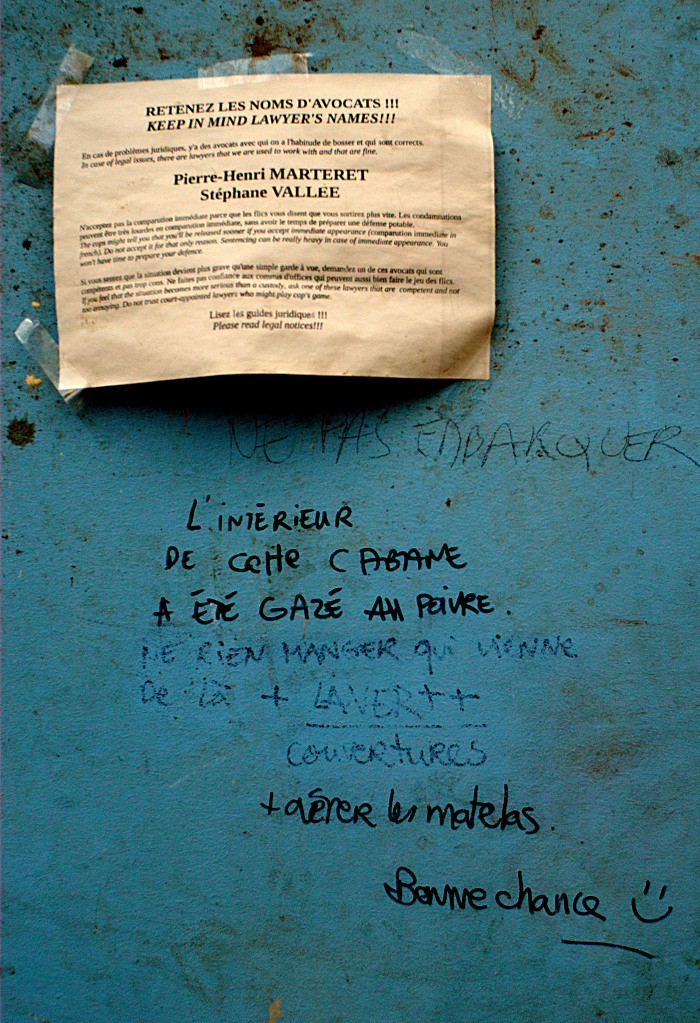 RETENEZ LES NOMS D'AVOCATS !!!
KEEP IN MIND LAWYER'S NAMES!!!
En cas de problèmes juridiques, y'a des avocats avec qui on a l'habitude de bosser et qui sont corrects.
In case of legal issues, there are lawyers that we are used to work with and that are fine.
Pierre-Henri MARTERET
Stéphane VALLÉE
N'acceptez pas la comparution immédiate parce que les flics vous disent que vous sortirez plus vite. Les condamnations
peuvent être très lourdes en comparution immédiate, sans avoir le temps de préparer une défense potable.
The cops might tell you that you'll be released sooner if you accept immediate appearance (comparution immediate in
french). Do not accept it for that only reason. Sentencing can be really heavy in case of immediate appearance. You
won't have time to prepare your defence.
Si vous sentez que la situation devient plus grave qu'une simple garde à vue, demandez un de ces avocats qui sont
compétents et pas trop cons. Ne faites pas confiance aux commis d'offices qui peuvent aussi bien faire le jeu des flics.
If you feel that the situation becomes more serious than a custody, ask one of these lawyers that are competent and not
too annoying. Do not trust court-appointed lawyers who might play cop's game.
Lisez les guides juridiques !!!
Please read legal notices!!!
NE PAS EMBARQUER
L'INTÉRIEUR
DE CETTE CABANE
A ÉTÉ GAZÉ AU POIVRE.
NE RIEN MANGER QUI VIENNE
DE LÀ + LAVER++
COUVERTURES
+ aérer les matelas.
Bonne chance :)